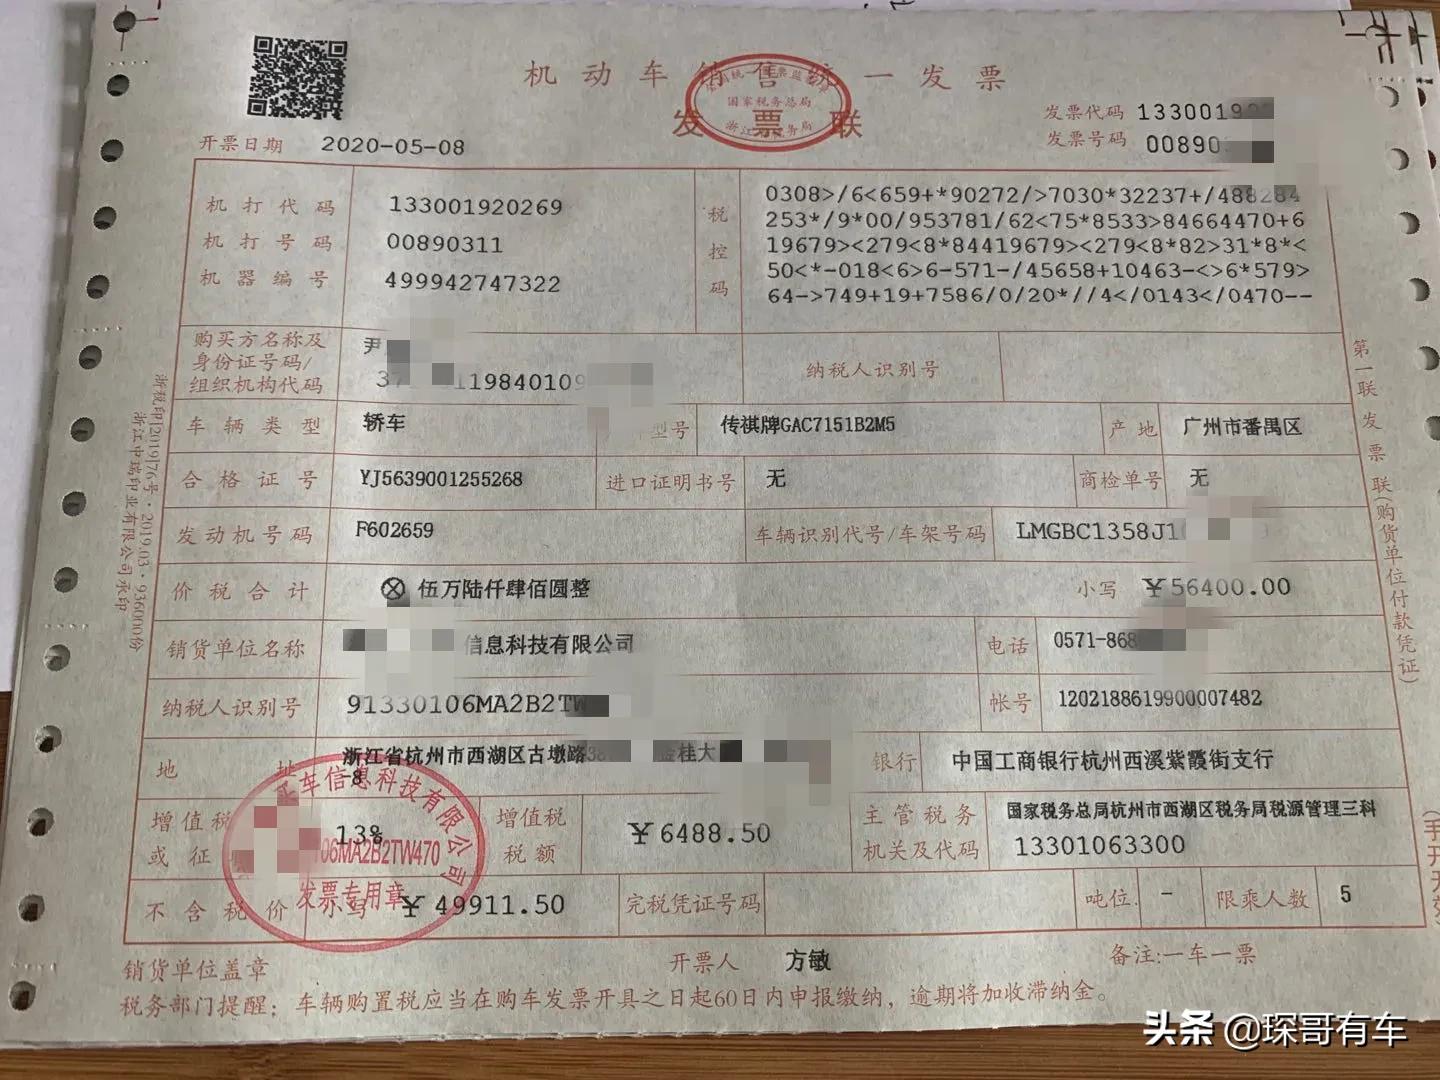 机动车销售统一发票
发票联
国家税务总局
发票代码 133001920
发票号码 00890
开票日期 2020-05-08
机打代码 133001920269
机打号码 00890311
机器编号 499942747322
税控码
0308>/6<659+*90272/>7030*32237+/488284
253*/9*00/953781/62<75*8533>84664470+6
19679><279<8*84419679><279<8*82>31*8*<
50<*-018<6>6-571-/45658+10463-<>6*579>
64->749+19+7586/0/20*//4</0143</0470--
购买方名称及
身份证号码/
组织机构代码
尹
37 119840109
纳税人识别号
车辆类型 轿车 型号 传祺牌GAC7151B2M5 产地 广州市番禺区
合格证号 YJ5639001255268 进口证明书号 无 商检单号 无
发动机号码 F602659 车辆识别代号/车架号码 LMGBC1358J1
价税合计 ⊗ 伍万陆仟肆佰圆整 小写 ￥56400.00
销货单位名称 信息科技有限公司 电话 0571-868
纳税人识别号 91330106MA2B2TW 帐号 1202188619900007482
地址 浙江省杭州市西湖区古墩路38 金桂大
-8
银行 中国工商银行杭州西溪紫霞街支行
增值税
或征
13%
增值税
税额
￥6488.50
主管税务
机关及代码
国家税务总局杭州市西湖区税务局税源管理三科
13301063300
不含税价 小写 ￥49911.50 完税凭证号码 吨位 - 限乘人数 5
车信息科技有限公司
106MA2B2TW470
发票专用章
销货单位盖章 开票人 方敏 备注:一车一票
税务部门提醒：车辆购置税应当在购车发票开具之日起60日内申报缴纳，逾期将加收滞纳金。
第一联 发票联(购货单位付款凭证)
浙税印[2019]76号·2019.03·936000份
浙江中瑞印业有限公司承印
头条 @琛哥有车